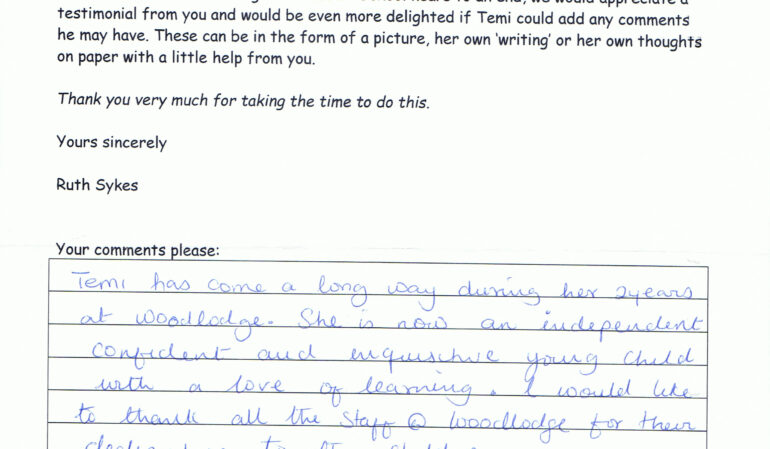 testimonial from you and would be even more delighted if Temi could add any comments
he may have. These can be in the form of a picture, her own 'writing' or her own thoughts
on paper with a little help from you.
Thank you very much for taking the time to do this.
Yours sincerely
Ruth Sykes
Your comments please:
Temi has come a long way during her 2years
at Woodlodge. She is now an independent
confident and inquisitive young child
with a love of learning. I would like
to thank all the staff @ Woodlodge for their
to